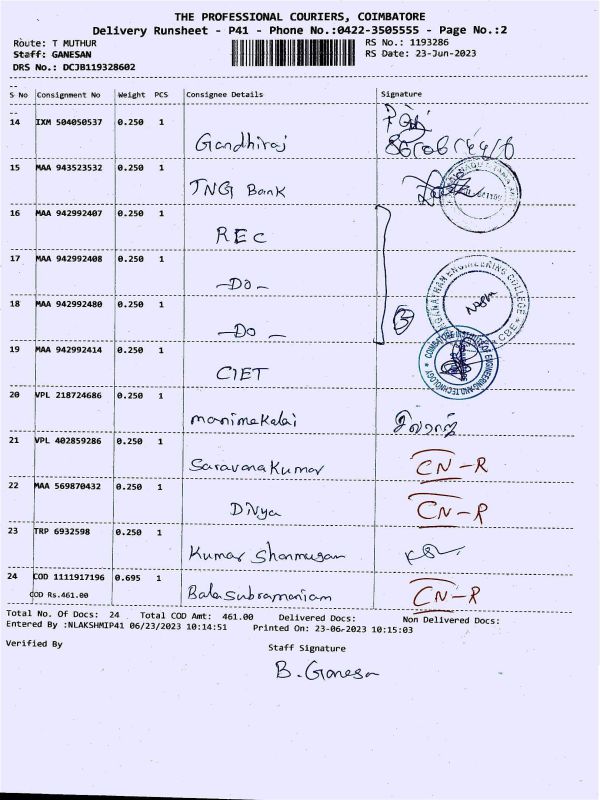 THE PROFESSIONAL COURIERS, COIMBATORE
Delivery Runsheet - P41 - Phone No.:0422-3505555 - Page No.:2
Route: T MUTHUR RS No.: 1193286
Staff: GANESAN RS Date: 23-Jun-2023
DRS No.: DCJB119328602
S No Consignment No Weight PCS Consignee Details Signature
14 IXM 504050537 0.250 1 Gandhiraj
15 MAA 943523532 0.250 1 TNG Bank
16 MAA 942992407 0.250 1 REC
17 MAA 942992408 0.250 1 -DO-
18 MAA 942992480 0.250 1 -DO- 3
ENGINEERING COLLEGE CBE
19 MAA 942992414 0.250 1 CIET
COIMBATORE INSTITUTE OF ENGINEERING AND TECHNOLOGY
20 VPL 218724686 0.250 1 manimekalai
21 VPL 402859286 0.250 1 Saravanakumar CN-R
22 MAA 569870432 0.250 1 Divya CN-R
23 TRP 6932598 0.250 1 Kumar Shanmugan
24 COD 1111917196 0.695 1 Balasubramaniam CN-R
COD Rs.461.00
Total No. Of Docs: 24 Total COD Amt: 461.00 Delivered Docs: Non Delivered Docs:
Entered By :NLAKSHMIP41 06/23/2023 10:14:51 Printed On: 23-06-2023 10:15:03
Verified By Staff Signature
B. Ganesan